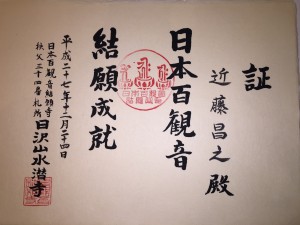 証
近藤昌之殿
日本百観音
結願成就
平成二十七年十二月二十四日
日本百観音結願寺
秩父三十四番札所
日沢山水潜寺